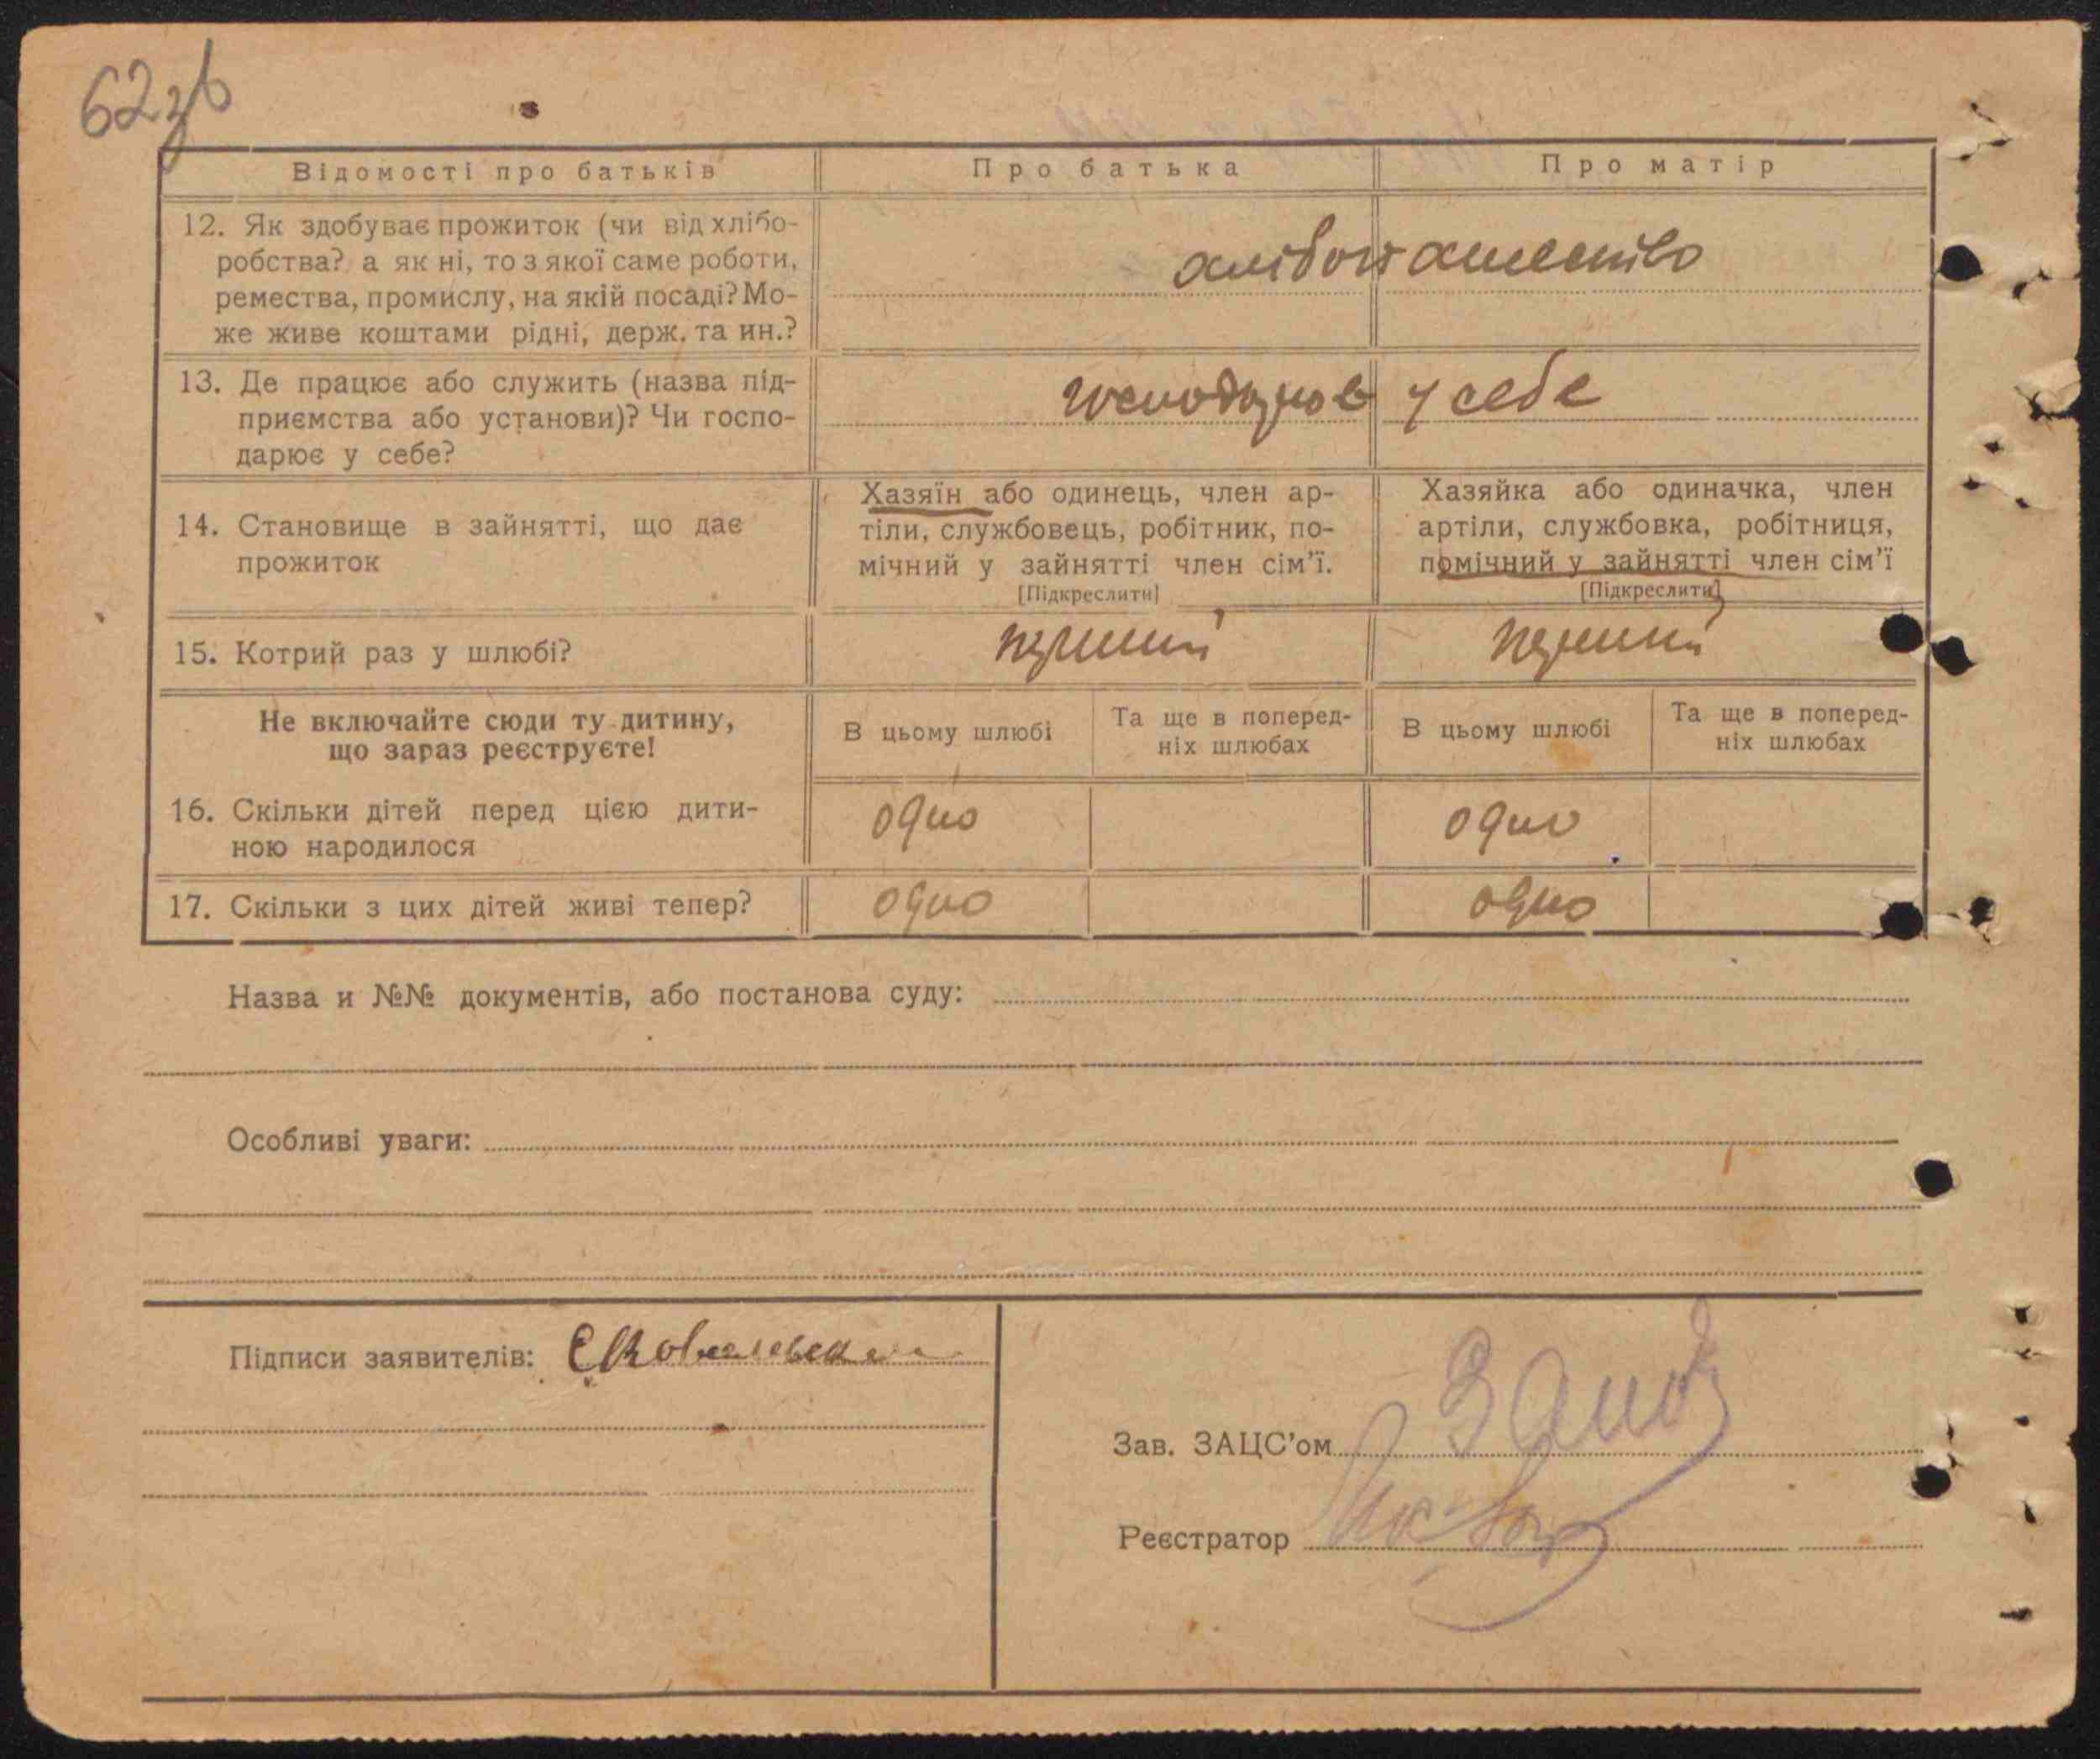 62зв
Відомості про батьків
Про батька
Про матір
12. Як здобуває прожиток (чи від хлібо-
робства? а як ні, то з якої саме роботи,
ремества, промислу, на якій посаді? Мо-
же живе коштами рідні, держ. та ин.?
хлібопашество
13. Де працює або служить (назва під-
приємства або установи)? Чи госпо-
дарює у себе?
у себе
14. Становище в зайнятті, що дає
прожиток
Хазяїн або одинець, член ар-
тіли, службовець, робітник, по-
мічний у зайнятті член сім'ї.
[Підкреслити]
Хазяйка або одиначка, член
артіли, службовка, робітниця,
помічний у зайнятті член сім'ї
[Підкреслити]
15. Котрий раз у шлюбі?
перший
перший
Не включайте сюди ту дитину,
що зараз реєструєте!
В цьому шлюбі
Та ще в поперед-
ніх шлюбах
В цьому шлюбі
Та ще в поперед-
ніх шлюбах
16. Скільки дітей перед цією дити-
ною народилося
одно
одно
17. Скільки з цих дітей живі тепер?
одно
одно
Назва и №№ документів, або постанова суду:
Особливі уваги:
Підписи заявителів:
Зав. ЗАЦС'ом
Реєстратор